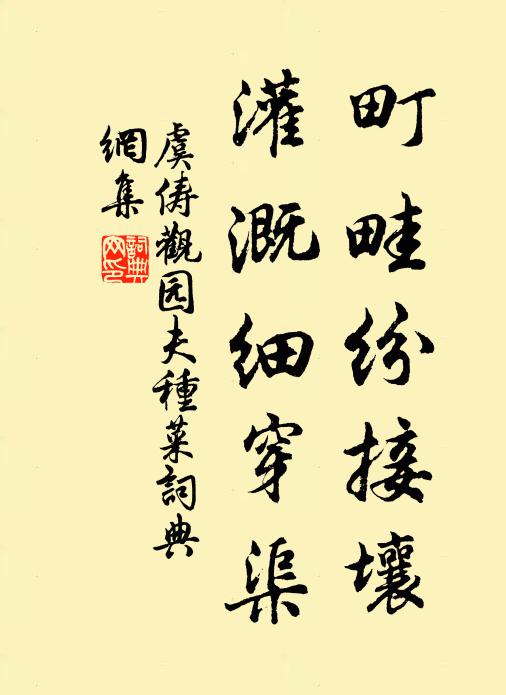 町畦纷接壤
灌溉细穿渠
虞俦觀园夫種菜詞典
網集
詞典
网印